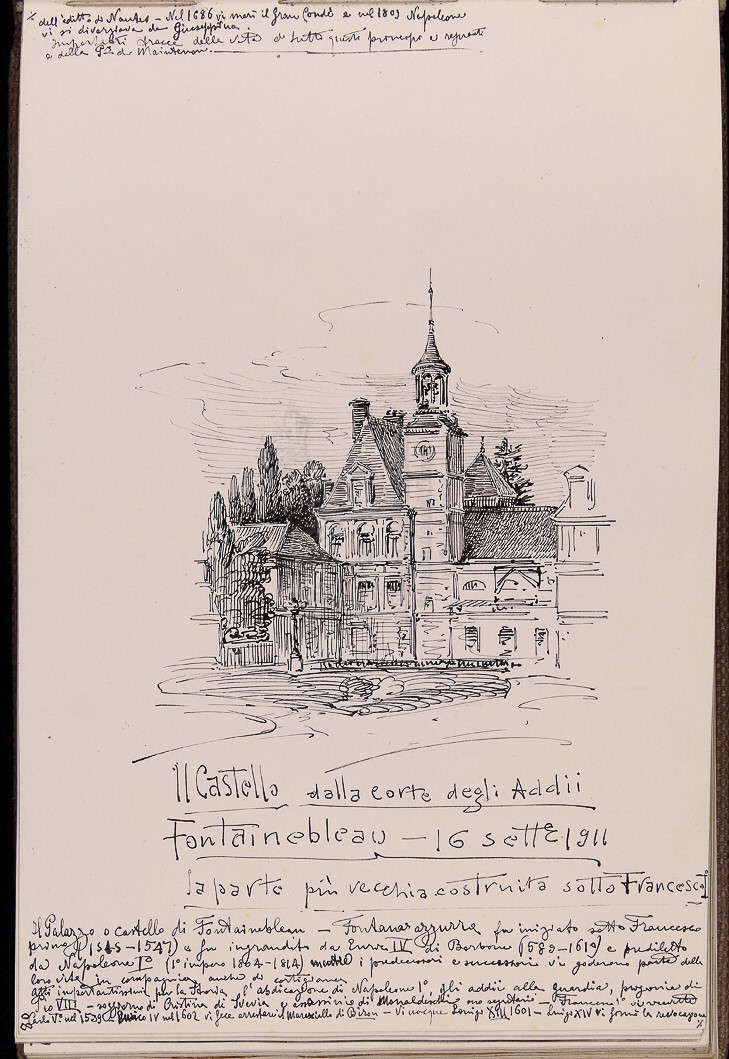 x dell'editto di Nantes – Nel 1686 vi morì il Gran Condé e nel 1809 Napoleone
vi si divorziava da Giuseppina.
Importanti tracce della vita di tutti questi principi e regnanti
e della Sra de Maintenon.
Il Castello dalla corte degli Addii
Fontainebleau – 16 sette 1911
la parte più vecchia costruita sotto Francesco I
Il Palazzo o castello di Fontainebleau – Fontanazzurra fu iniziato sotto Francesco
primo (1515–1547) e fu ingrandito da Enrico IV di Borbone (1589–1619) e prediletto
da Napoleone I° (1° impero 1804–1814) i predecessori e successori vi godevano parte della
loro vita in compagnia anche di cortigiane.
Atti importantissimi per la Storia, l'abdicazione di Napoleone 1°, gli addii alla guardia, prigionia di
Pio VII – soggiorno di Cristina di Svevia e assassinio di Monaldeschi suo segretario – Francesco 1° vi
Carlo V° nel 1539 Enrico IV nel 1602 vi fece arrestare il Maresciallo di Biron – Vi nacque Luigi XIII 1601 – Luigi XIV vi firmò la revocazione
x